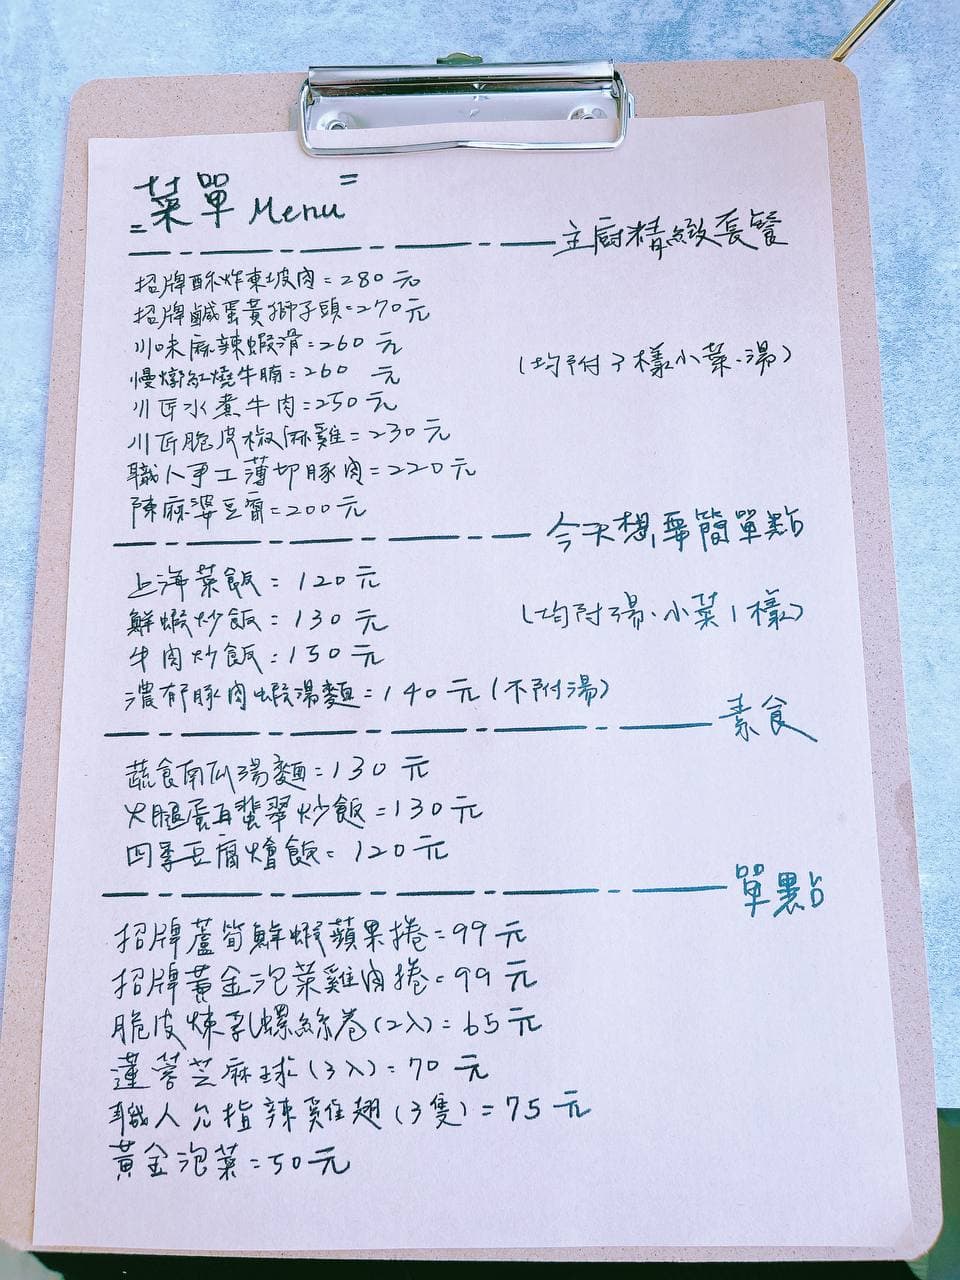 =菜單 Menu=
主廚精緻套餐
招牌酥炸東坡肉=280元
招牌鹹蛋黃獅子頭=270元
川味麻辣蝦滑=260元
(均附3樣小菜、湯)
慢燉紅燒牛腩=260 元
川匠水煮牛肉=250元
川匠脆皮椒麻雞=230元
職人手工薄切豚肉=220元
陳麻婆豆腐=200元
今天想要簡單點
上海菜飯=120元
鮮蝦炒飯=130元
(均附湯、小菜1樣)
牛肉炒飯=150元
濃郁豚肉蝦湯麵=140元(不附湯)
素食
蔬食南瓜湯麵=130元
火腿蛋耳翡翠炒飯=130元
四季豆腐燴飯=120元
單點
招牌蘆筍鮮蝦蘋果捲=99元
招牌黃金泡菜雞肉捲=99元
脆皮煉乳螺絲卷(2入)=65元
蓮蓉芝麻球(3入)=70元
職人允指辣雞翅(3隻)=75元
黃金泡菜=50元